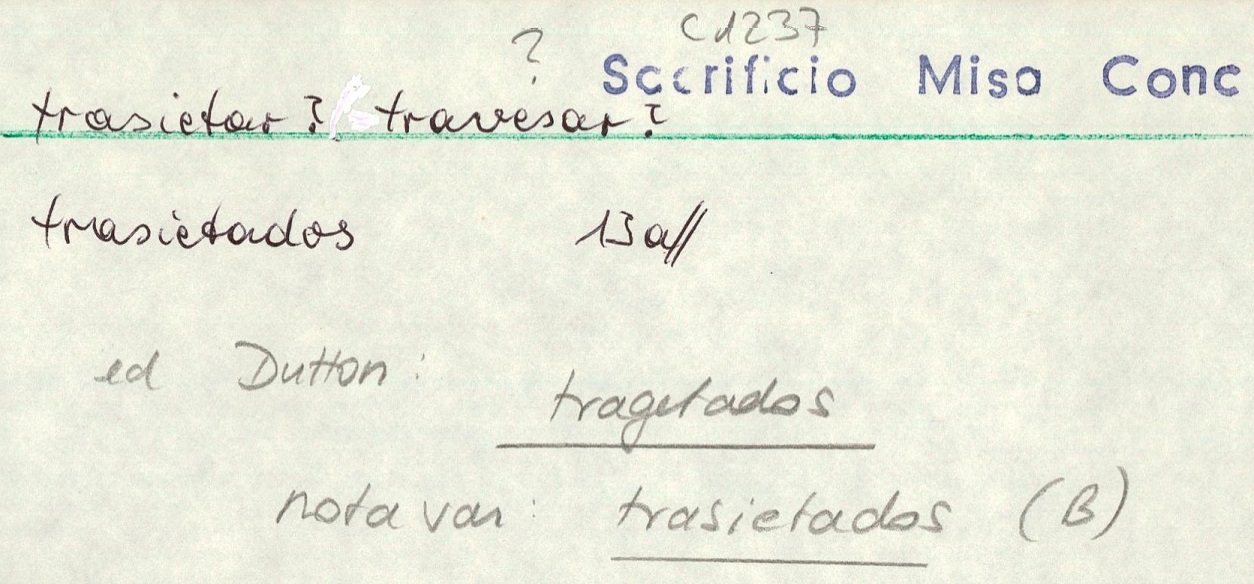 c1237
? Sacrificio Misa Conc
trasietar? travesar?
trasietados 13a//
ed Dutton:
tragetados
nota var: trasietados (B)